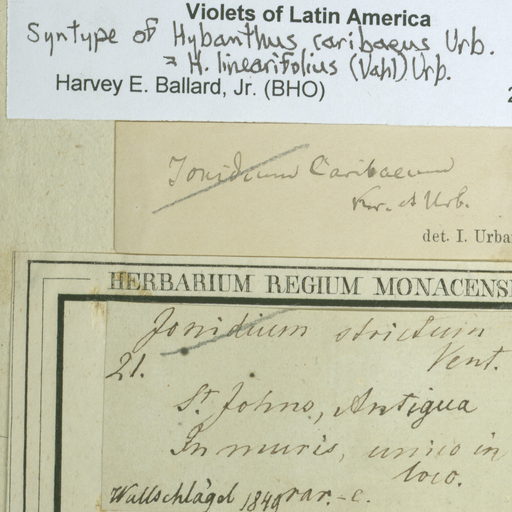 Violets of Latin America
Syntype of Hybanthus caribaeus Urb.
= H. linearifolius (Vahl) Urb.
Harvey E. Ballard, Jr. (BHO)
2
Jonidium Caribaeum
Kr. et Urb.
det. I. Urba
HERBARIUM REGIUM MONACENS
Jonidium strictum
Vent.
21.
St. Johns, Antigua
In muris, unico in
loco.
Wullschlägel 1849 rar. - c.